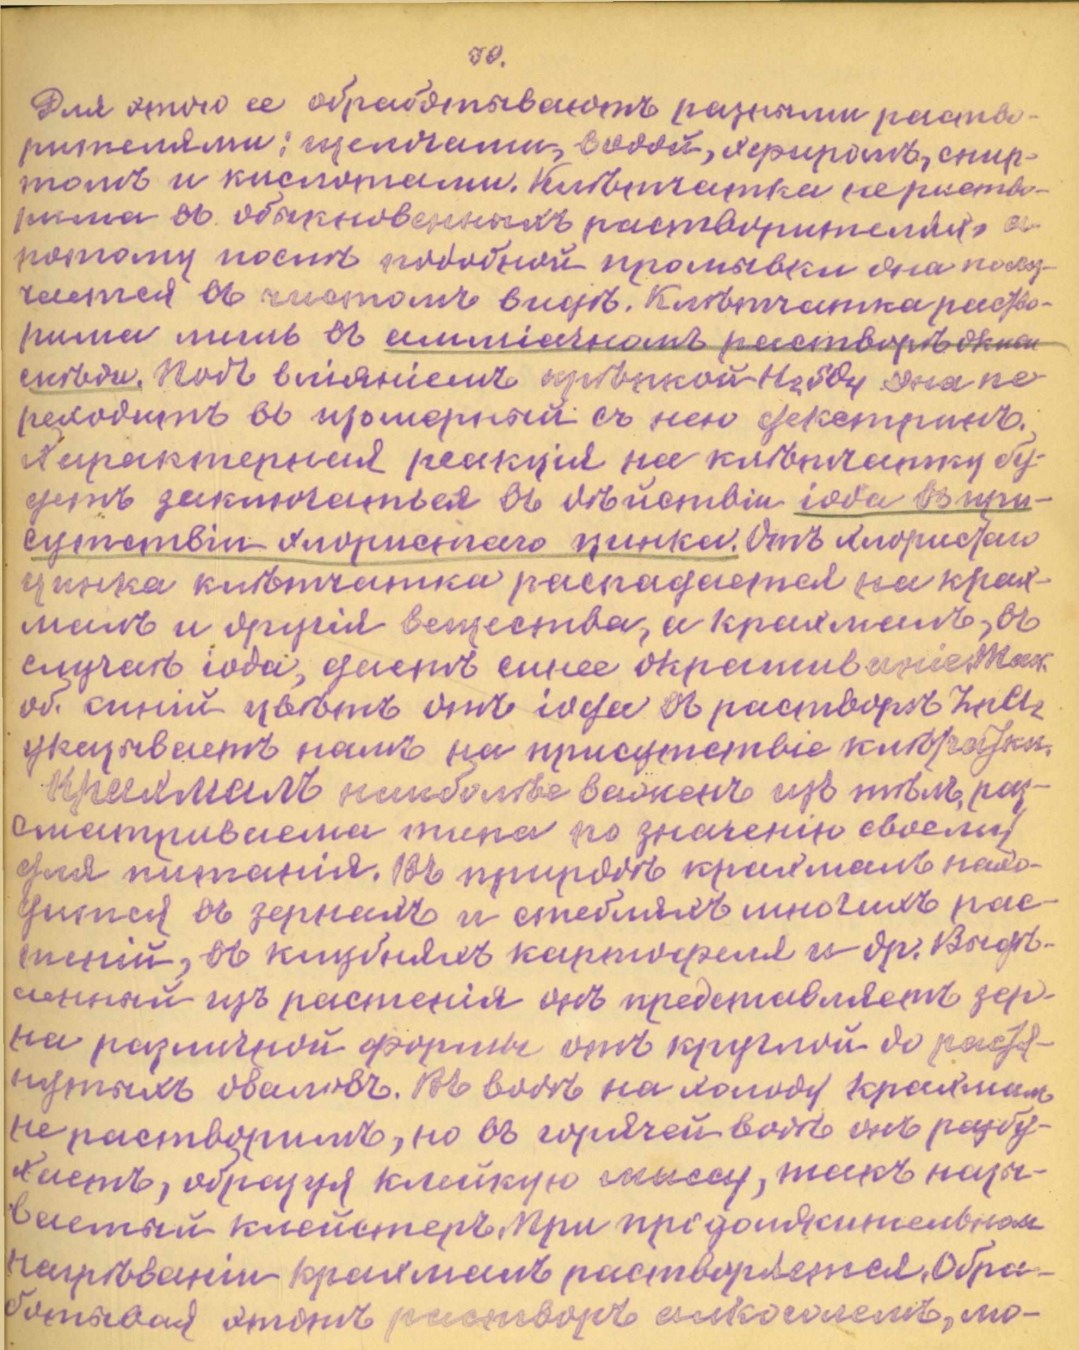 70.
Для этого ее обрабатываютъ разными раство-
рителями: щелочами, водой, эфиромъ, спир-
томъ и кислотами. Клѣтчатка нераство-
рима въ обыкновенныхъ растворителяхъ, а
потому послѣ подобной промывки она полу-
чается въ чистомъ видѣ. Клѣтчатка раство-
рима лишь въ амміачномъ растворѣ окиси
мѣди. Подъ вліяніемъ крѣпкой H2SO4 она пе
реходитъ въ изомерный съ нею декстринъ.
Характерная реакція на клѣтчатку бу-
детъ заключаться въ дѣйствіи іода въ при-
сутствіи хлористаго цинка. Отъ хлористаго
цинка клѣтчатка распадается на крах-
малъ и другія вещества, а крахмалъ, въ
случаѣ іода, даетъ синее окрашиваніе. Так.
об. синій цвѣтъ отъ іода въ растворѣ ZnCl2
указываетъ намъ на присутствіе клѣтчатки.
Крахмалъ наиболѣе важенъ изъ тѣлъ, раз-
сматриваема типа по значенію своему
для питанія. Въ природѣ крахмалъ нахо-
дится въ зернахъ и стебляхъ многихъ рас-
теній, въ клубняхъ картофеля и др. Выдѣ-
ленный изъ растенія онъ представляетъ зер-
на различной формы отъ круглой до растя-
нутыхъ оваловъ. Въ водѣ на холоду крахмалъ
не растворимъ, но въ горячей водѣ онъ разбу-
хаетъ, образуя клейкую массу, такъ назы-
ваемый клейстеръ. При продолжительном
нагрѣваніи крахмалъ растворяется. Обра-
ботывая этотъ растворъ алкоголемъ, мо-